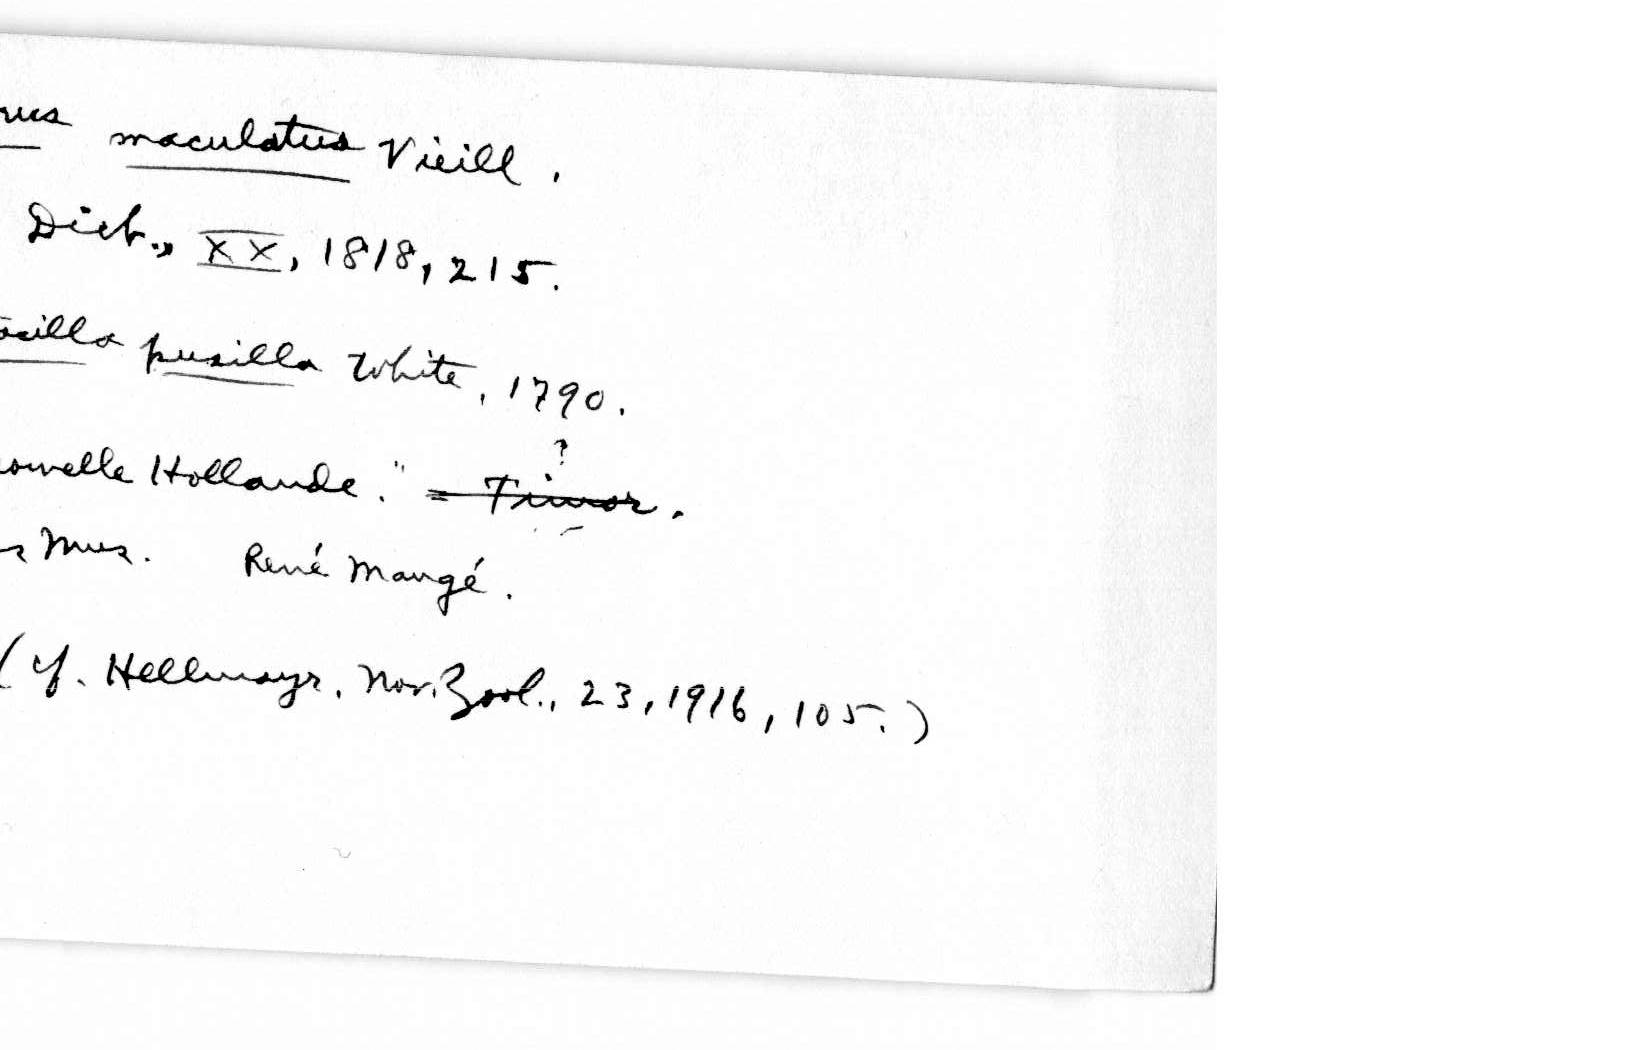 rus maculatus Vieill.
Dict., XX, 1818, 215.
acilla pusilla White, 1790.
?
ouvelle Hollande." = Timor.
s Mus. René Maugé.
(cf. Hellmayr, Nov. Zool., 23, 1916, 105.)